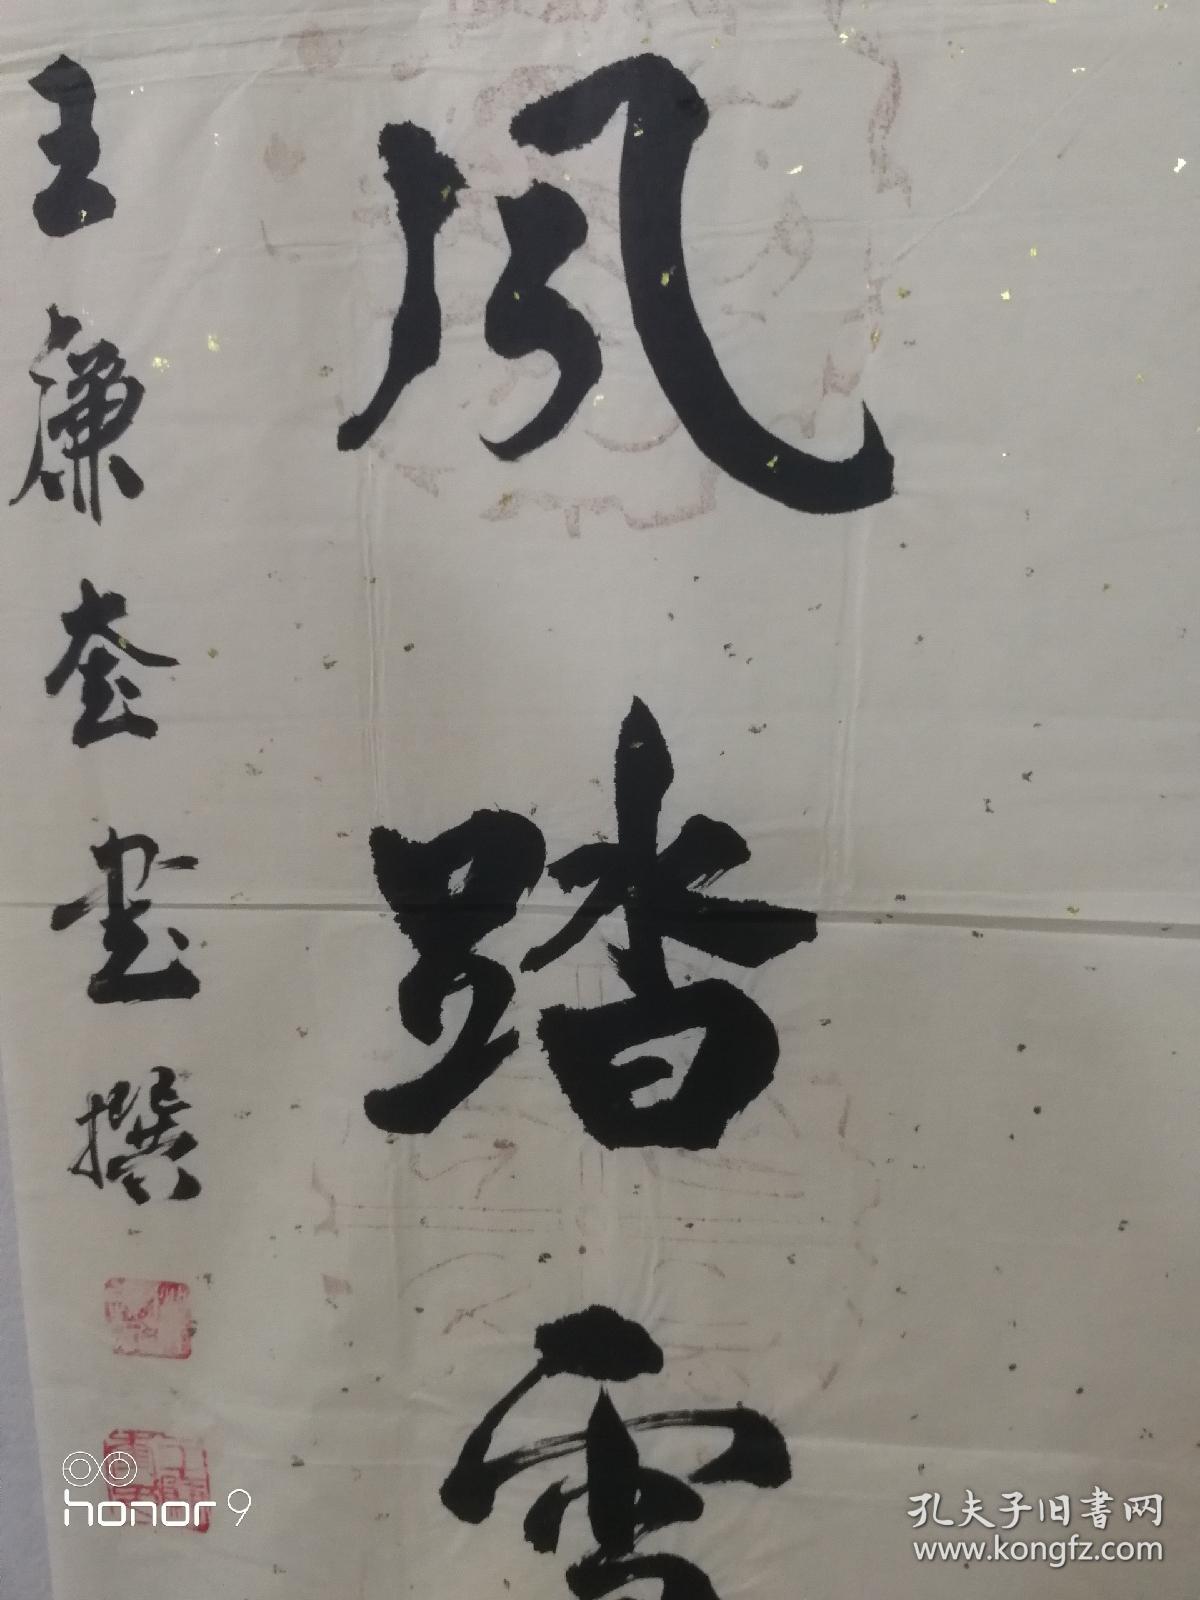 风踏雪
王廉奎书撰
honor 9
孔夫子旧書网
www.kongfz.com